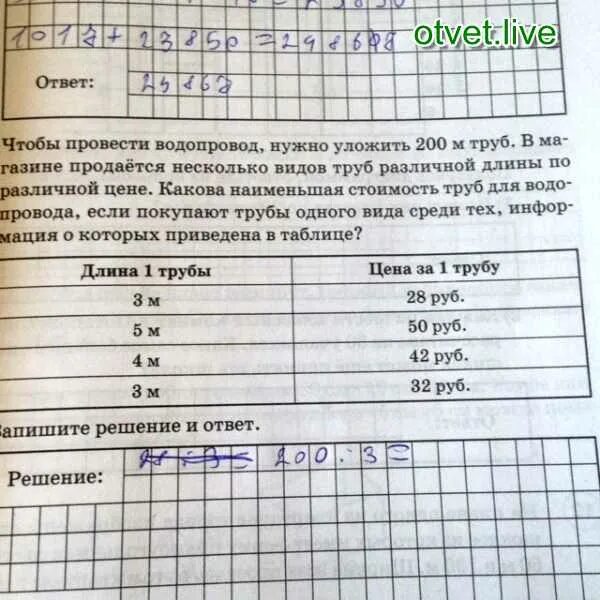 1017 + 23850 = 298678
otvet.live
Ответ: 24867
Чтобы провести водопровод, нужно уложить 200 м труб. В ма-
газине продаётся несколько видов труб различной длины по
различной цене. Какова наименьшая стоимость труб для водо-
провода, если покупают трубы одного вида среди тех, инфор-
мация о которых приведена в таблице?
Длина 1 трубы Цена за 1 трубу
3 м 28 руб.
5 м 50 руб.
4 м 42 руб.
3 м 32 руб.
Запишите решение и ответ.
Решение: 200 : 3 =